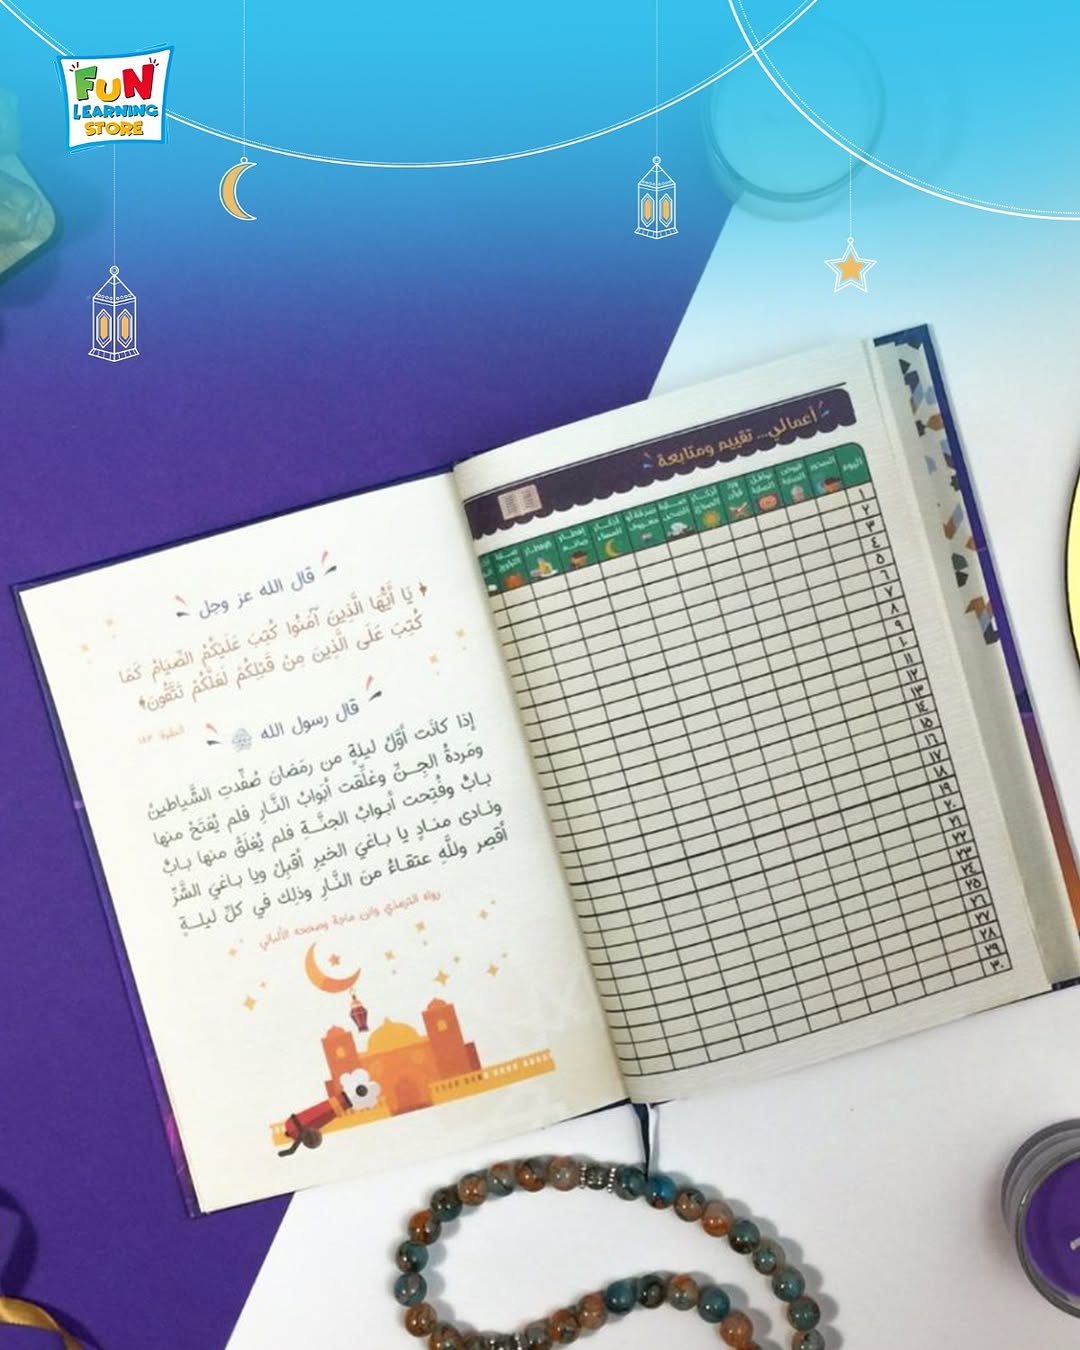 FUN
LEARNING
STORE
أعمالي... تقييم ومتابعة
اليوم
السحور
فروض الصلاة
نوافل الصلاة
ورد قرآن
أذكار الصباح
صلاة الضحى
صدقة أو معروف
أذكار المساء
إفطار صائم
الإفطار
صلاة التراويح
١
٢
٣
٤
٥
٦
٧
٨
٩
١٠
١١
١٢
١٣
١٤
١٥
١٦
١٧
١٨
١٩
٢٠
٢١
٢٢
٢٣
٢٤
٢٥
٢٦
٢٧
٢٨
٢٩
٣٠
قال الله عز وجل
﴿ يَا أَيُّهَا الَّذِينَ آمَنُوا كُتِبَ عَلَيْكُمُ الصِّيَامُ كَمَا
كُتِبَ عَلَى الَّذِينَ مِنْ قَبْلِكُمْ لَعَلَّكُمْ تَتَّقُونَ﴾
البقرة: ١٨٣
قال رسول الله ﷺ
إذا كانَت أوَّلُ ليلةٍ من رمَضانَ صُفِّدتِ الشَّياطينُ
ومَردةُ الجِنِّ وغلِّقت أبَوابُ النَّارِ فلم يُفتَحْ منها
بابٌ وفُتِحت أبوابُ الجنَّةِ فلم يُغلَقْ منها بابٌ
ونادى منادٍ يا باغيَ الخيرِ أقبِلْ ويا باغيَ الشَّرِّ
أقصِر وللَّهِ عتقاءُ منَ النَّارِ وذلِك في كلِّ ليلةٍ
رواه الترمذي وابن ماجة وصححه الألباني